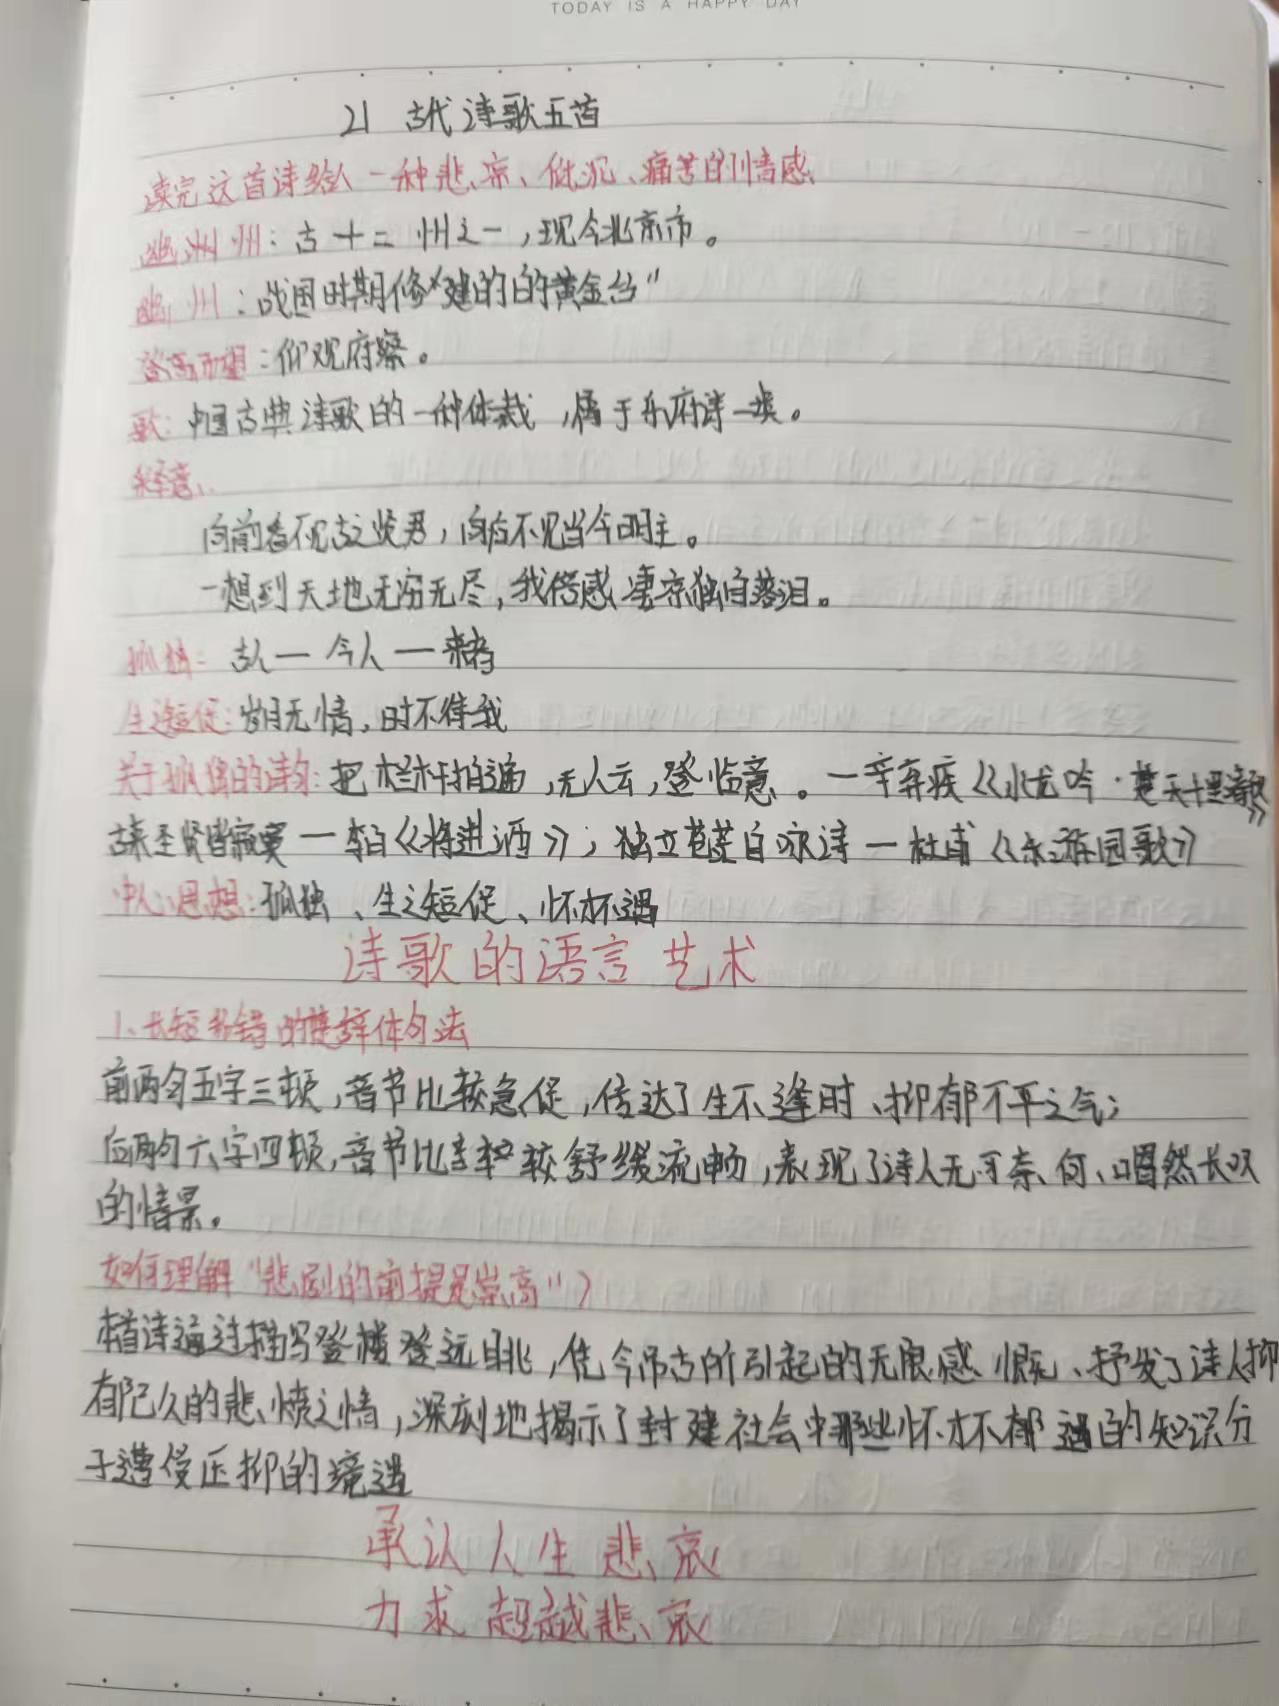 TODAY IS A HAPPY DAY
21 古代诗歌五首
读完这首诗给人一种悲凉、低沉、痛苦的情感
幽州州：古十二州之一，现今北京市。
幽州：战国时期修“建的的黄金台”
登高而望：仰观府察。
歌：中国古典诗歌的一种体裁，属于乐府诗一类。
释意：
向前看不见古之贤君，向后不见当今明主。
一想到天地无穷无尽，我倍感凄凉独自落泪。
孤独：古人一今人一来者
生之短促：岁月无情，时不待我
关于孤独的诗句：把栏杆拍遍，无人云，登临意。一辛弃疾《水龙吟·楚天千里清秋》
古来圣贤皆寂寞一李白《将进酒》；独立苍茫自咏诗一杜甫《乐游园歌》
中心思想：孤独、生之短促、怀才不遇
诗歌的语言艺术
1、长短不错的楚辞体句法
前两句五字三顿，音节比较急促，传达了生不逢时、抑郁不平之气；
后两句六字四顿，音节比较舒缓流畅，表现了诗人无可奈何、喟然长叹
的情景。
如何理解“悲剧的前提是崇高”？
本首诗通过描写登楼登远目眺，凭今吊古所引起的无限感慨、抒发了诗人抑
郁已久的悲愤之情，深刻地揭示了封建社会中那些怀才不遇的知识分
子遭受压抑的境遇
承认人生悲哀
力求超越悲哀